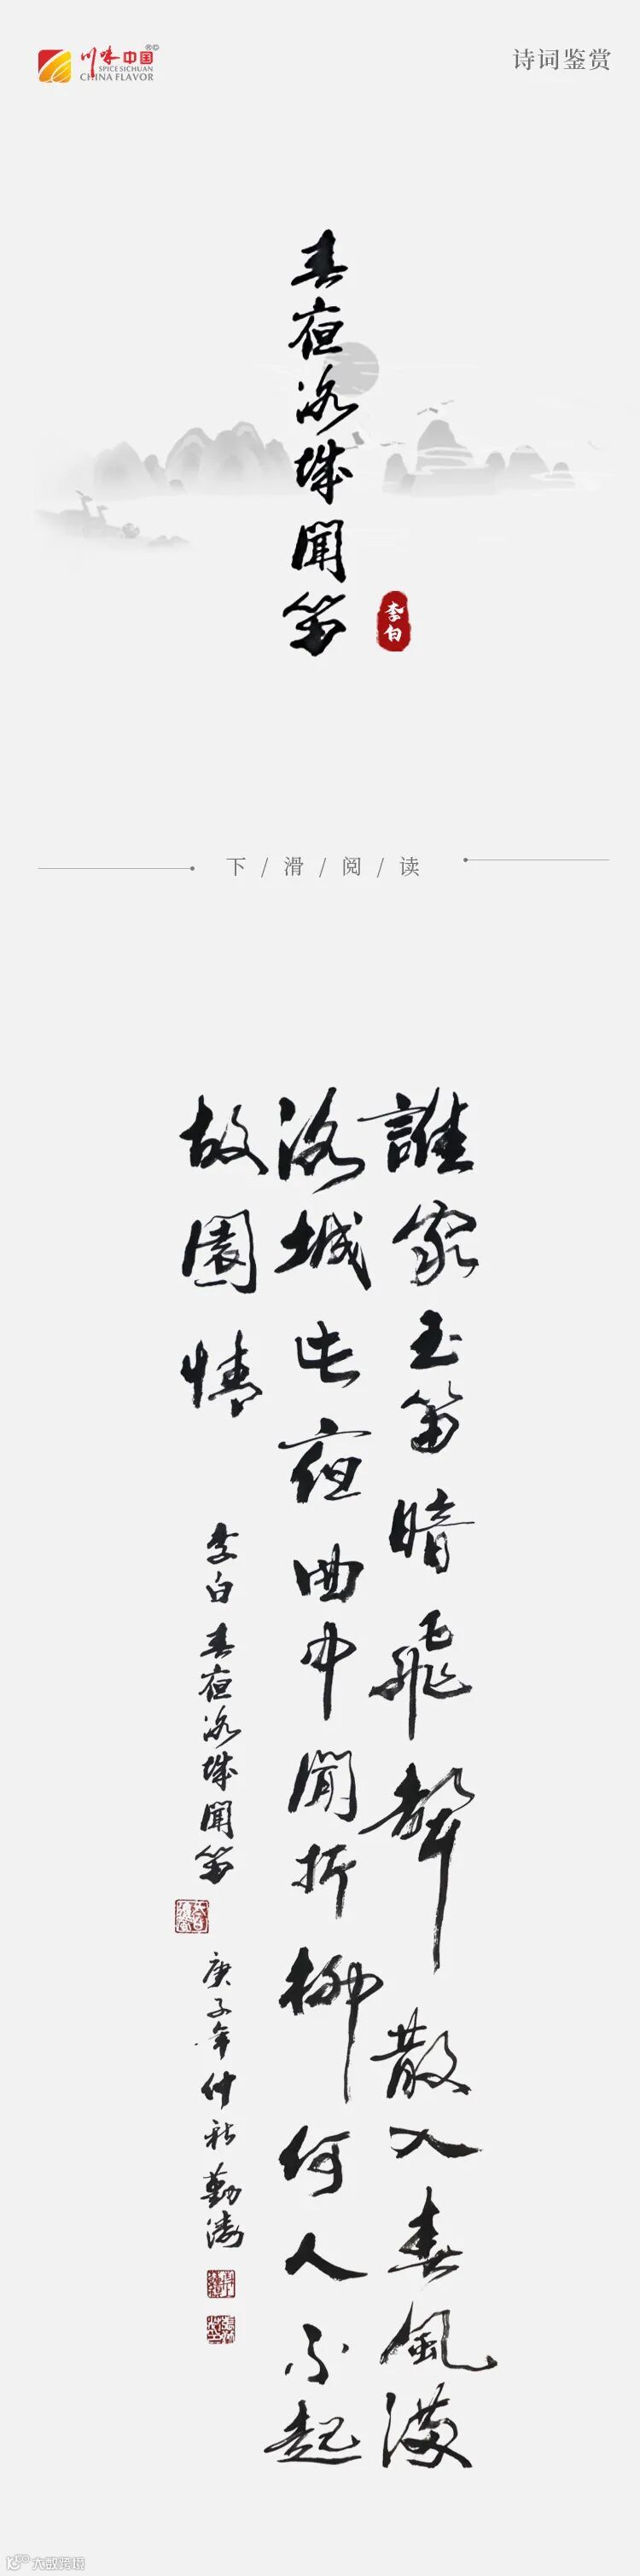 川味中国®©
SPICE SICHUAN
CHINA FLAVOR
诗词鉴赏
春夜洛城聞笛
李白
下/滑/阅/读
誰家玉笛暗飛聲散入春風滿
洛城此夜曲中聞折柳何人不起
故園情
李白春夜洛城聞笛
庚子年仲秋勤濤
大数跨境